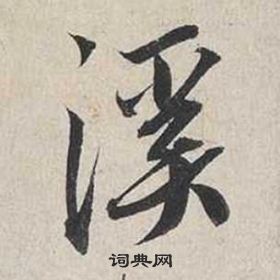 溪
词典网